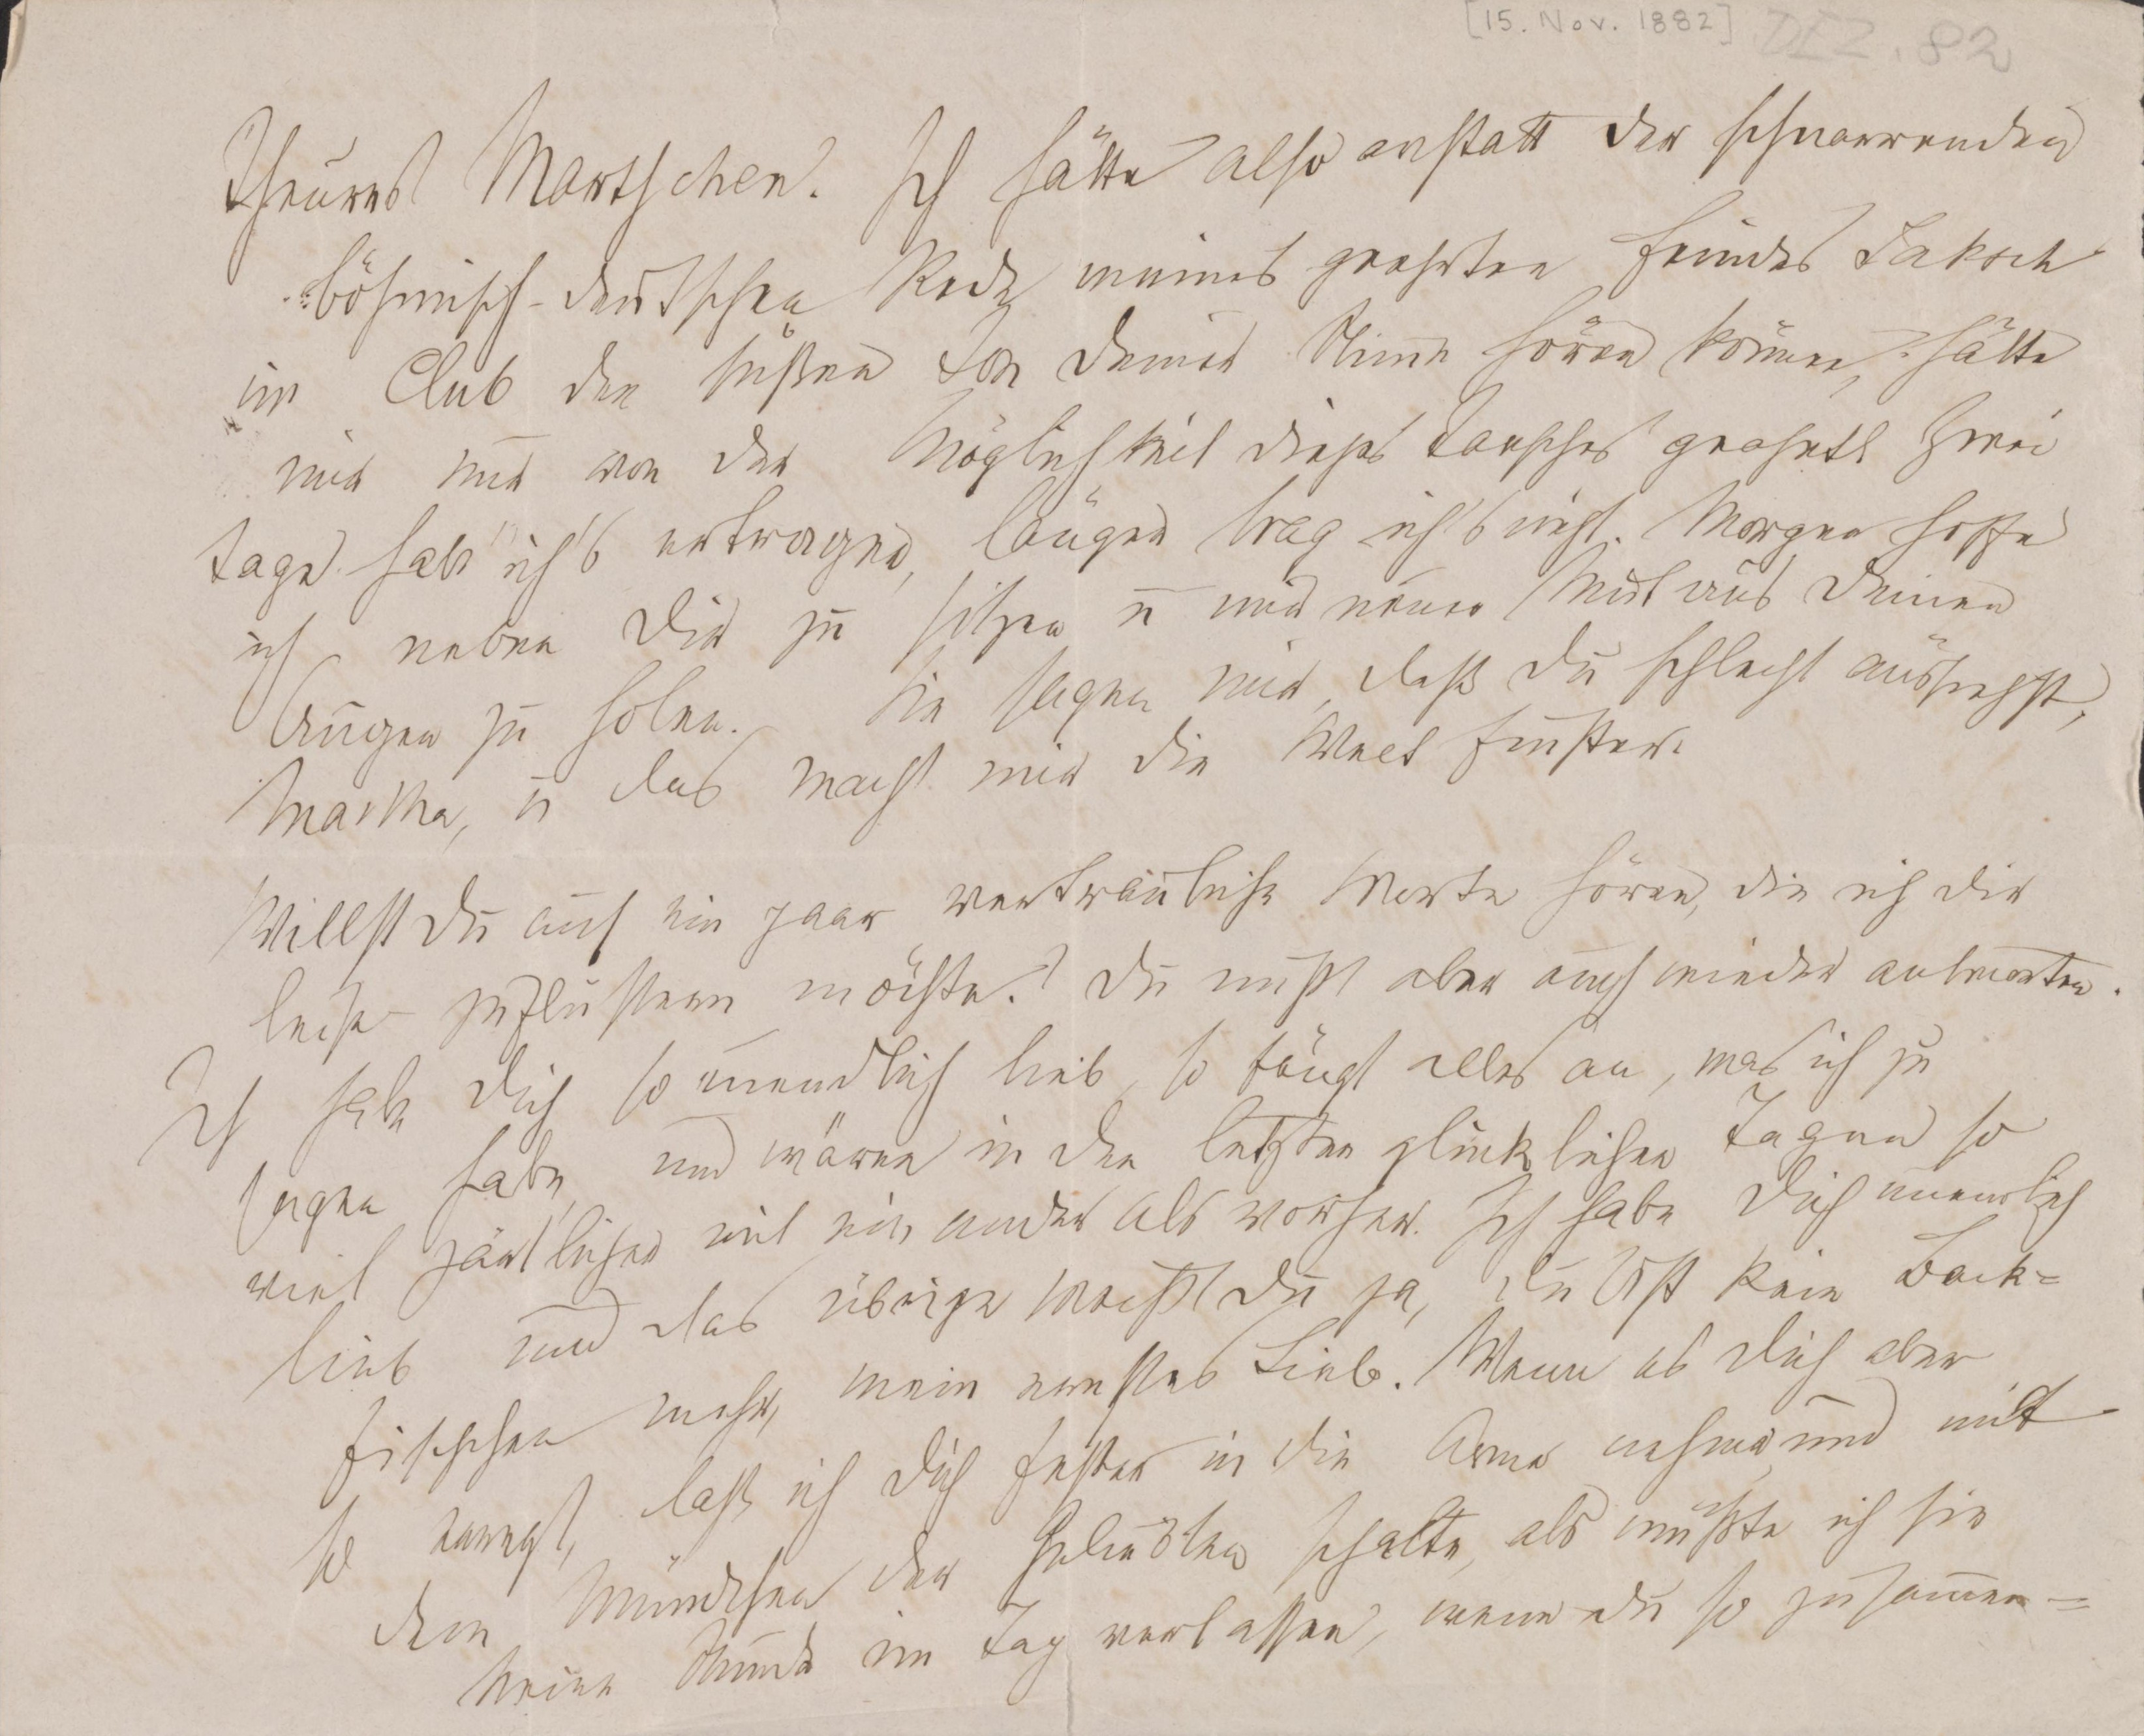 [15. Nov. 1882] DEZ. 82
Theures Martchen. Ich hätte also anstatt der schnarrenden
böhmisch-deutschen Rede meines geehrten Feindes Jaksch
im Club den süßen Ton Deiner Stimme hören können, hätte
mir nur von der Möglichkeit dieses Tausches geahnt. Zwei
Tage hab ich's ertragen, länger trag ich's nicht. Morgen hoffe
ich neben Dir zu sitzen u mir neuen Mut aus Deinen
Augen zu holen. Sie sagen mir, daß Du schlecht aussiehst,
Martha, u das macht mir die Welt finster.
Willst Du auch ein paar vertrauliche Worte hören, die ich Dir
leise zuflüstern möchte? Du mußt aber auch wieder antworten.
Ich habe Dich so unendlich lieb, so fängt alles an, was ich zu
sagen habe, und wären in den letzten glücklichen Tagen so
viel zärtlicher mit einander als vorher. Ich habe Dich unendlich
lieb und das übrige weißt Du ja, Du bist kein Back=
fischchen mehr, mein ernstes Lieb. Wenn es Dich aber
so erregt, daß ich Dich fester in die Arme nehme und mit
dem Mündchen der Geliebten schalte, als müßte ich sie
keine Stunde im Tag verlassen, wenn du so zusammen=